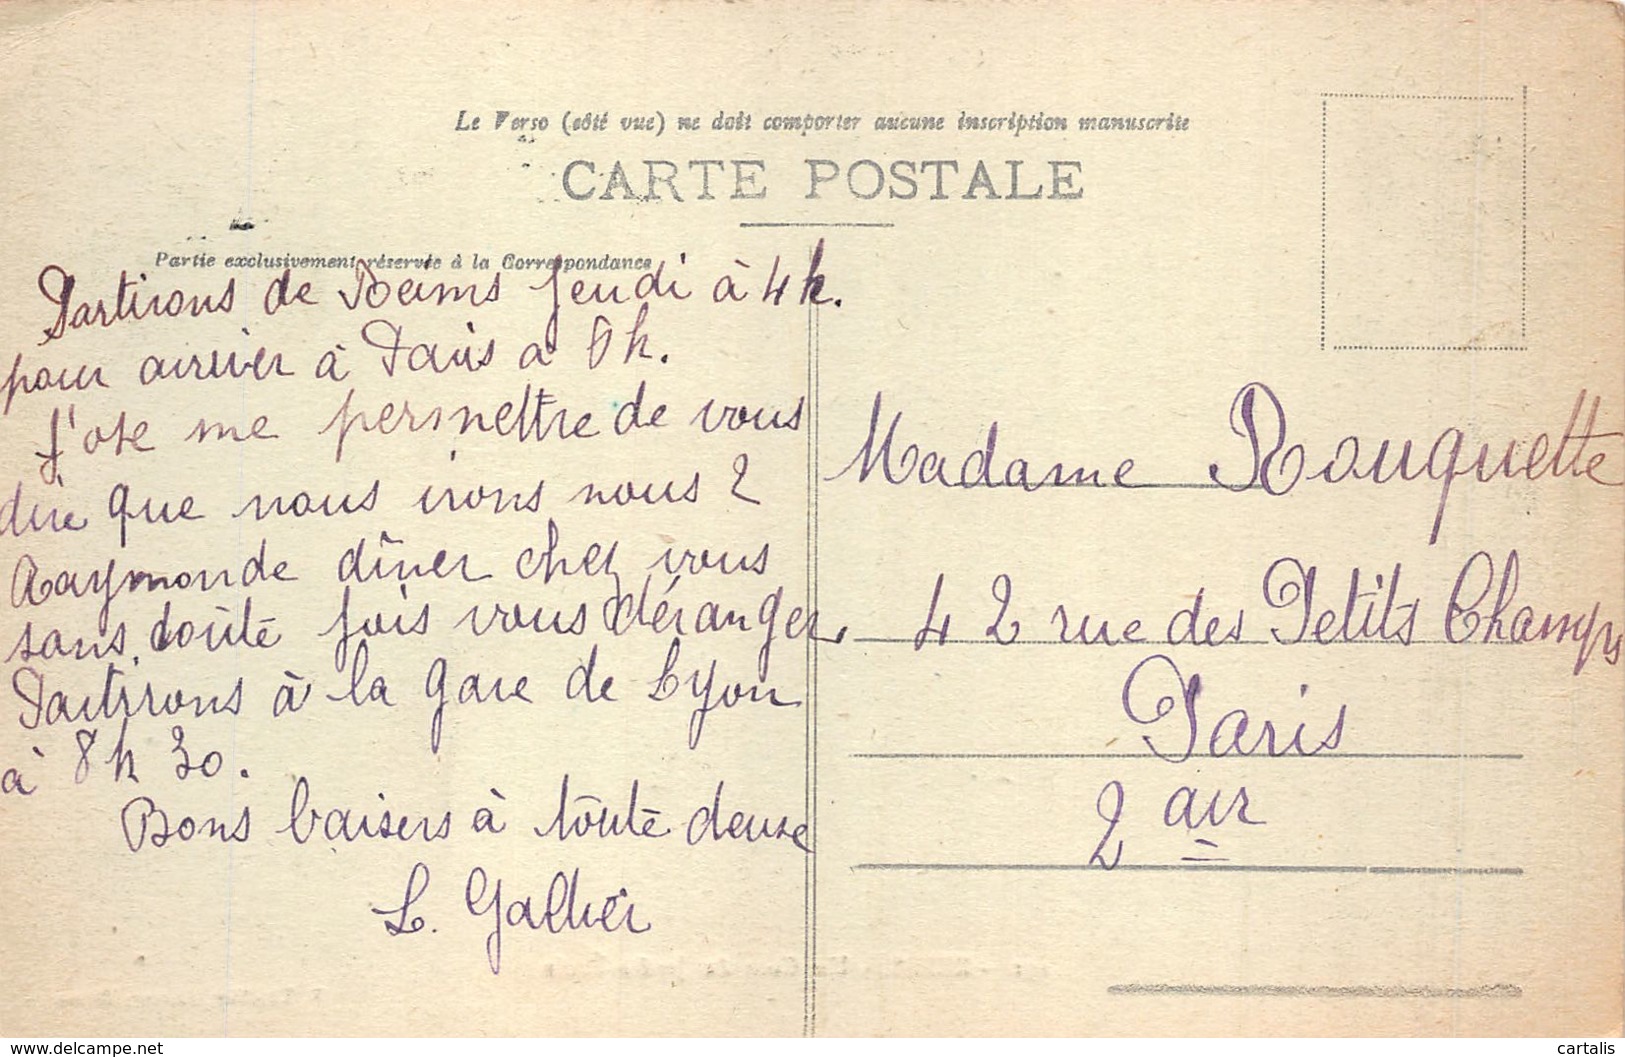 Le Verso (côté vue) ne doit comporter aucune inscription manuscrite
CARTE POSTALE
Partie exclusivement réservée à la Correspondance
Partirons de Reims Jeudi à 4h.
pour arriver à Paris a 6h.
J'ose me permettre de vous
dire que nous irons nous 2
Raymonde dîner chez vous
sans toute fois vous déranger.
Partirons à la gare de Lyon
à 8h 30.
Bons baisers à toute deuxe
L. Galhier
Madame Rouquette
42 rue des Petits Champs
Paris
2 arr
www.delcampe.net
cartalis